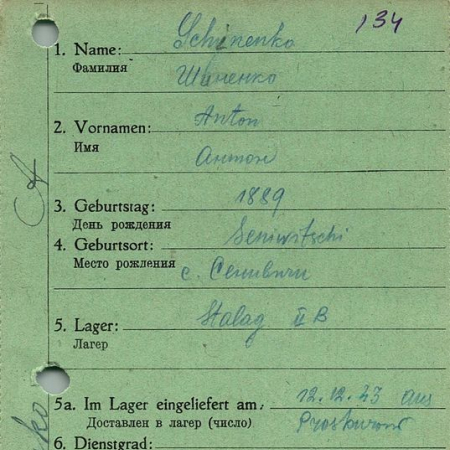 134
1. Name: Schinenko
Фамилия Шиненко
2. Vornamen: Anton
Имя Антон
3. Geburtstag: 1889
День рождения
4. Geburtsort: Seniwitschi
Место рождения с. Сенивичи
5. Lager: Stalag II B
Лагер
5a. Im Lager eingeliefert am: 12.12.43 aus
Доставлен в лагер (число) Proskurow
6. Dienstgrad: